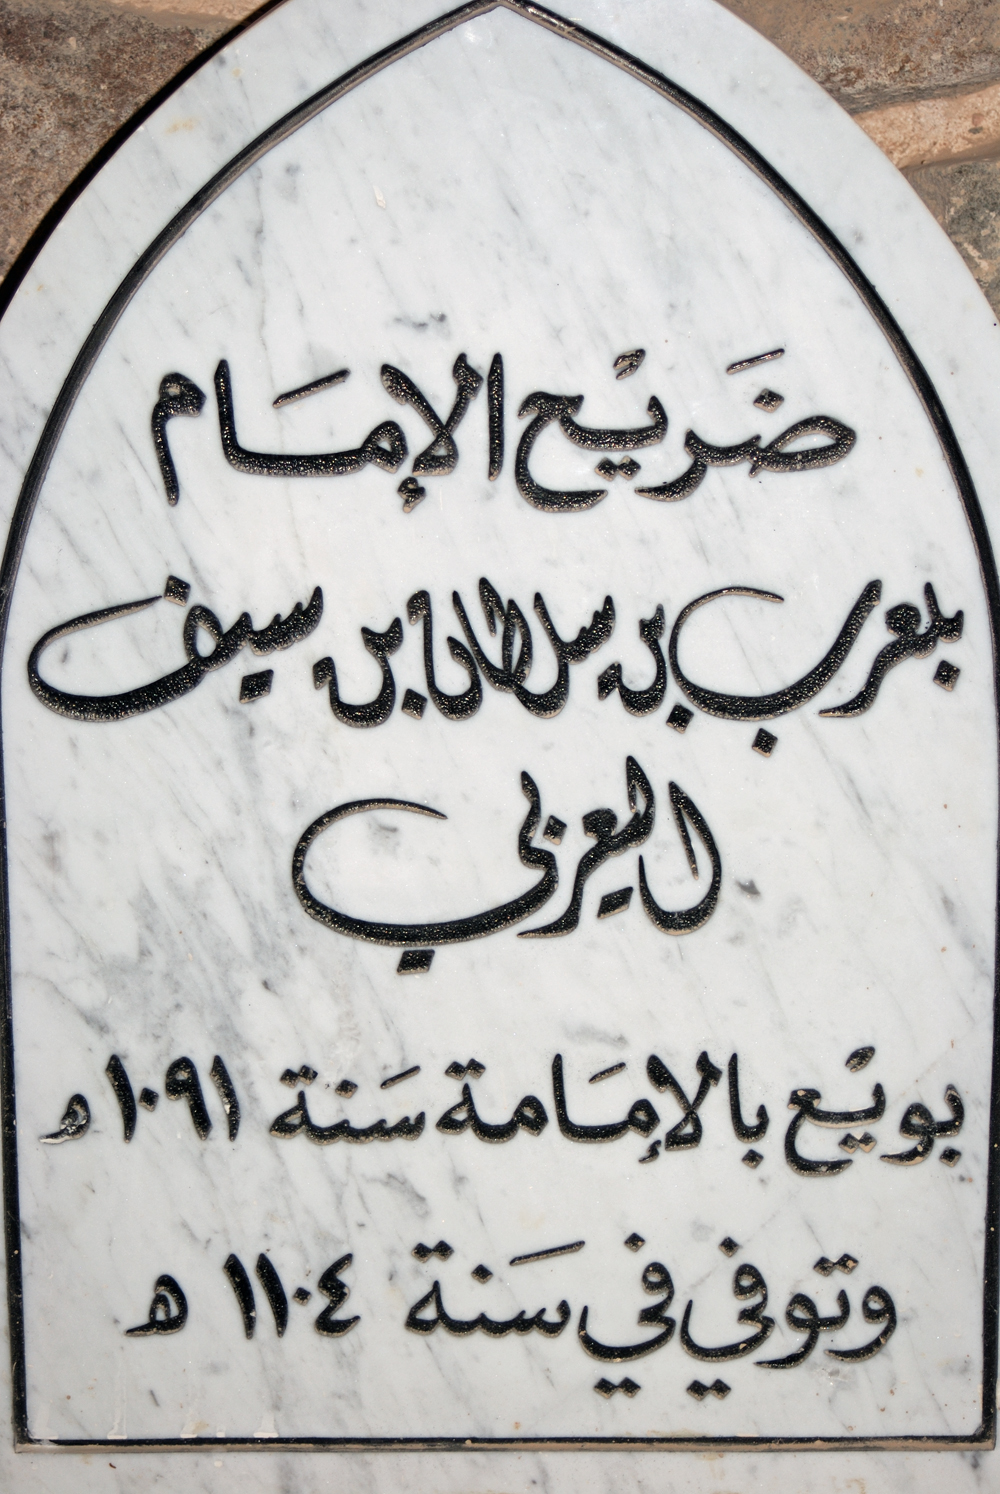 ضَريْح الإمَام
بلعرب بن سلطان بن سيف
اليعربي
بويْع بالإمَامة سَنة ١٠٩١ه
وتوفي في سَنة ١١٠٤ ه